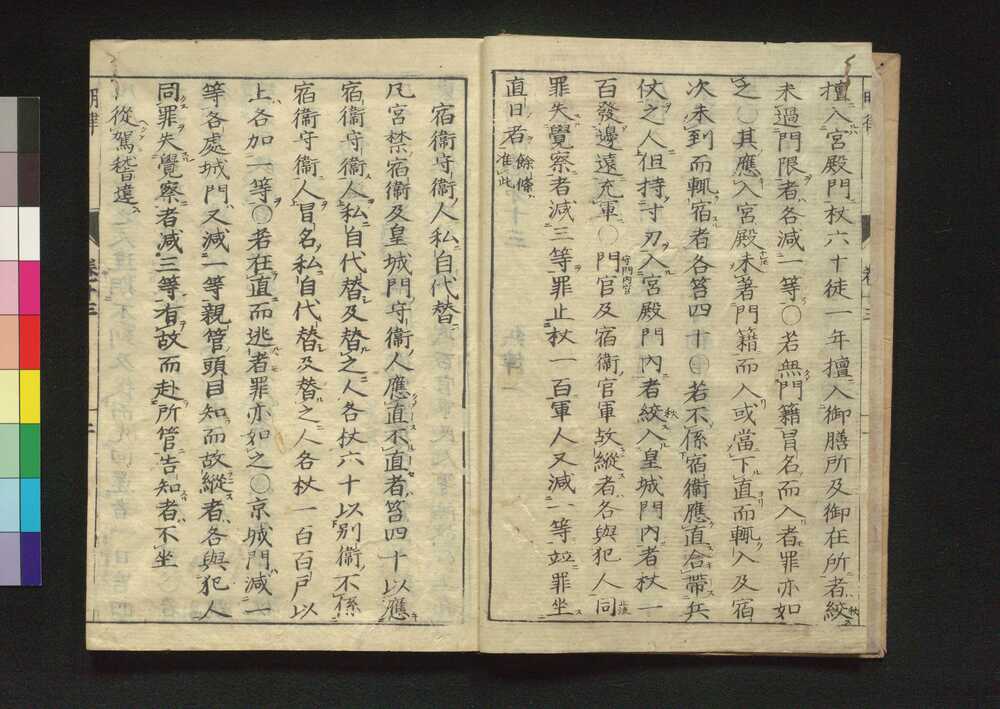 擅入宮殿門杖六十徒一年擅入御膳所及御在所者絞
未過門限者各減一等○若無門籍冒名而入者罪亦如
之○其應入宮殿未著門籍而入或當下直而輒入及宿
次未到而輒宿者各笞四十○若不係宿衞應直合帶兵
仗之人但持寸刃入宮殿門內者絞入皇城門內者杖一
百發邊遠充軍○門官及宿衞官軍故縱者各與犯人同
罪失覺察者減三等罪止杖一百軍人又減一等並罪坐
直日者餘條准此
宿衞守衞人私自代替
凡宮禁宿衞及皇城門守衞人應直不直者笞四十以應
宿衞守衞人私自代替及替之人各杖六十以別衞不係
宿衞守衞人冒名私自代替及替之人各杖一百百戶以
上各加一等○若在直而逃者罪亦如之○京城門減一
等各處城門又減一等親管頭目知而故縱者各與犯人
同罪失覺察者減三等有故而赴所管告知者不坐
從駕稽違
明律
卷十三